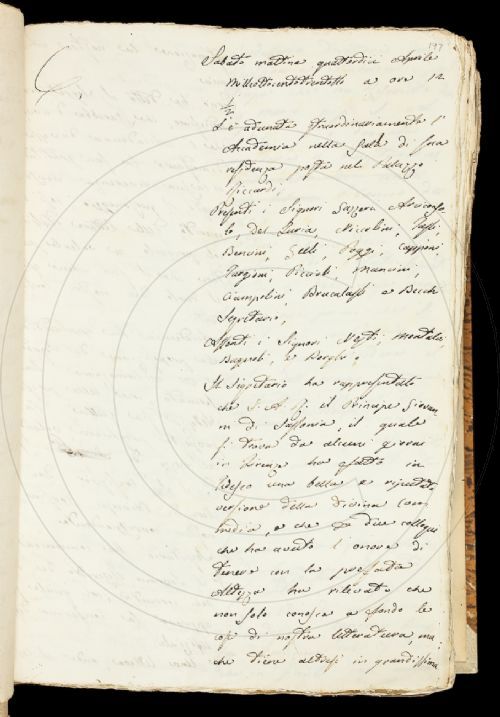 197
Sabato mattina quattordici Aprile
Milleottocentotrentotto a ore 12
1/2
S'è adunata straordinariamente l'
Accademia nella Sala di sua
residenza posta nel Palazzo
Riccardi,
Presenti i Signori Gazzeri Arciconso
lo, Del Furia, Niccolini,
Bencini, Zelli, Poggi, Capponi,
Targioni, Piccioli, Mancini,
Ciampolini, Brucalassi e Becchi
Segretario,
Assenti i Signori Nesti, Montalvi,
Bagnoli, e Borghi,
Il Segretario ha rappresentato
che S. A. R. il Principe Giovan
ni di Sassonia, il quale
si trova da alcuni giorni
in Firenze ha fatto in
Tedesco una bella e riputata
versione della Divina Com
media, e che dai colloqui
che ha avuto l'onore di
tenere con la prefata
Altezza ha rilevato che
non solo conosce a fondo le
cose di nostra letteratura, ma
che tiene altresì in grandissima